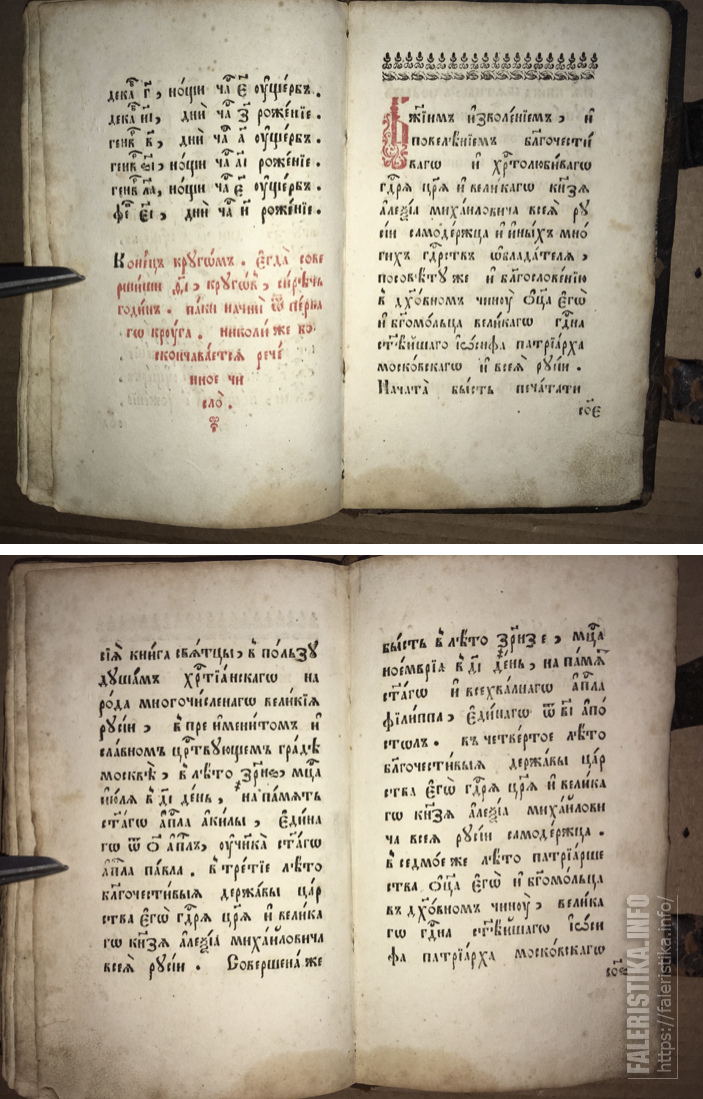 дека҇ г҃і, но́щи ча҇ є҃ оу҆ще́рбъ.
дека҇ и҃і, днѝ ча҇ з҃ роже́нїе.
генв҇ в҃, днѝ ча҇ а҃ оу҆ще́рбъ.
роже́нїе.
генв҇ л҃а, но́щи ча҇ є҃ оу҆ще́рбъ.
фе҇ є҃і, днѝ ча҇ и҃ роже́нїе.
Коне́цъ крꙋгѡ́мъ. Є҆гда̀ сове
рши́ши круго́въ, си́рѣчь
годи́нъ. па́ки начнѝ ѿ пе́рва
гѡ крꙋ́га. николи́ же бо
сконча́ваетсѧ рече́
нное чи
сло̀.
Бж҃їимъ и҆зволе́нїемъ, и҆
повелѣ́нїемъ бл҃гочести́
ваго и҆ хрⷭ҇толюби́вагѡ
гдⷭ҇рѧ цр҃ѧ̀ и҆ вели́кагѡ кн҃зѧ
а҆леѯі́ѧ миха́иловича всеѧ̀ рꙋ
сі́и самоде́ржца и҆ и҆ны́хъ мно́
гихъ гдⷭ҇рствъ ѡ҆блада́телѧ,
посовѣ́тꙋ же и҆ бл҃гослове́нїю
в дх҃о́вномъ чинꙋ̀ ѻ҆ц҃а̀ є҆гѡ̀
и҆ бг҃омо́льца вели́кагѡ гдⷭ҇на
ст҃ѣ́йшаго і҆ѡ́сифа патрїа́рха
моско́вскагѡ и҆ всеѧ̀ рꙋсі́и.
Начата̀ бы́сть печа́тати
сїѧ̀ кни́га свѧ́тцы, в по́льзꙋ
дꙋша́мъ хрⷭ҇тїа́нскагѡ на
ро́да многочи́сленагѡ вели́кїѧ
рꙋсі́и, в преимени́томъ и҆
сла́вномъ црⷭ҇твꙋющемъ гра́дѣ
москвѣ̀, в лѣ́то зр҃ни, мцⷭ҇а
і҆ю́лѧ в д҃і де́нь, на па́мѧть
ст҃а́гѡ а҆пⷭ҇ла а҆ки́лы, є҆ди́на
гѡ ѿ о҃ а҆пⷭ҇лъ, оу҆чн҃ка̀ ст҃а́гѡ
а҆пⷭ҇ла па́вла. в тре́тїе лѣ́то
бл҃гочести́выѧ держа́вы ца́р
ства є҆гѡ̀ гдⷭ҇рѧ цр҃ѧ̀ и҆ вели́ка
гѡ кн҃зѧ а҆леѯі́ѧ миха́йловича
всеѧ̀ рꙋсі́и. Соверше́на же
бы́сть в лѣ́то зр҃нз е, мцⷭ҇а
ное́мврїа в д҃і де́нь, на па́мѧ҇
ст҃а́гѡ и҆ всехва́лнагѡ а҆пⷭ҇ла
фїли́ппа, є҆ди́нагѡ ѿ в҃і а҆по́
столъ. въ четве́ртое лѣ́то
бл҃гочести́выѧ держа́вы ца́р
ства є҆гѡ̀ гдⷭ҇рѧ цр҃ѧ̀ и҆ вели́ка
гѡ кн҃зѧ а҆леѯі́ѧ миха́йлови
ча всеѧ̀ рꙋсі́и самоде́ржца.
в седмо́е же лѣ́то патрїа́рше
ства ѻ҆ц҃а̀ є҆гѡ̀ и҆ бг҃омо́льца
въ дх҃о́вномъ чинꙋ̀, вели́ка
гѡ гдⷭ҇на ст҃ѣ́йшагѡ і҆ѡ́си
фа патрїа́рха моско́вскагѡ
FALERISTIKA.INFO
https://faleristika.info/